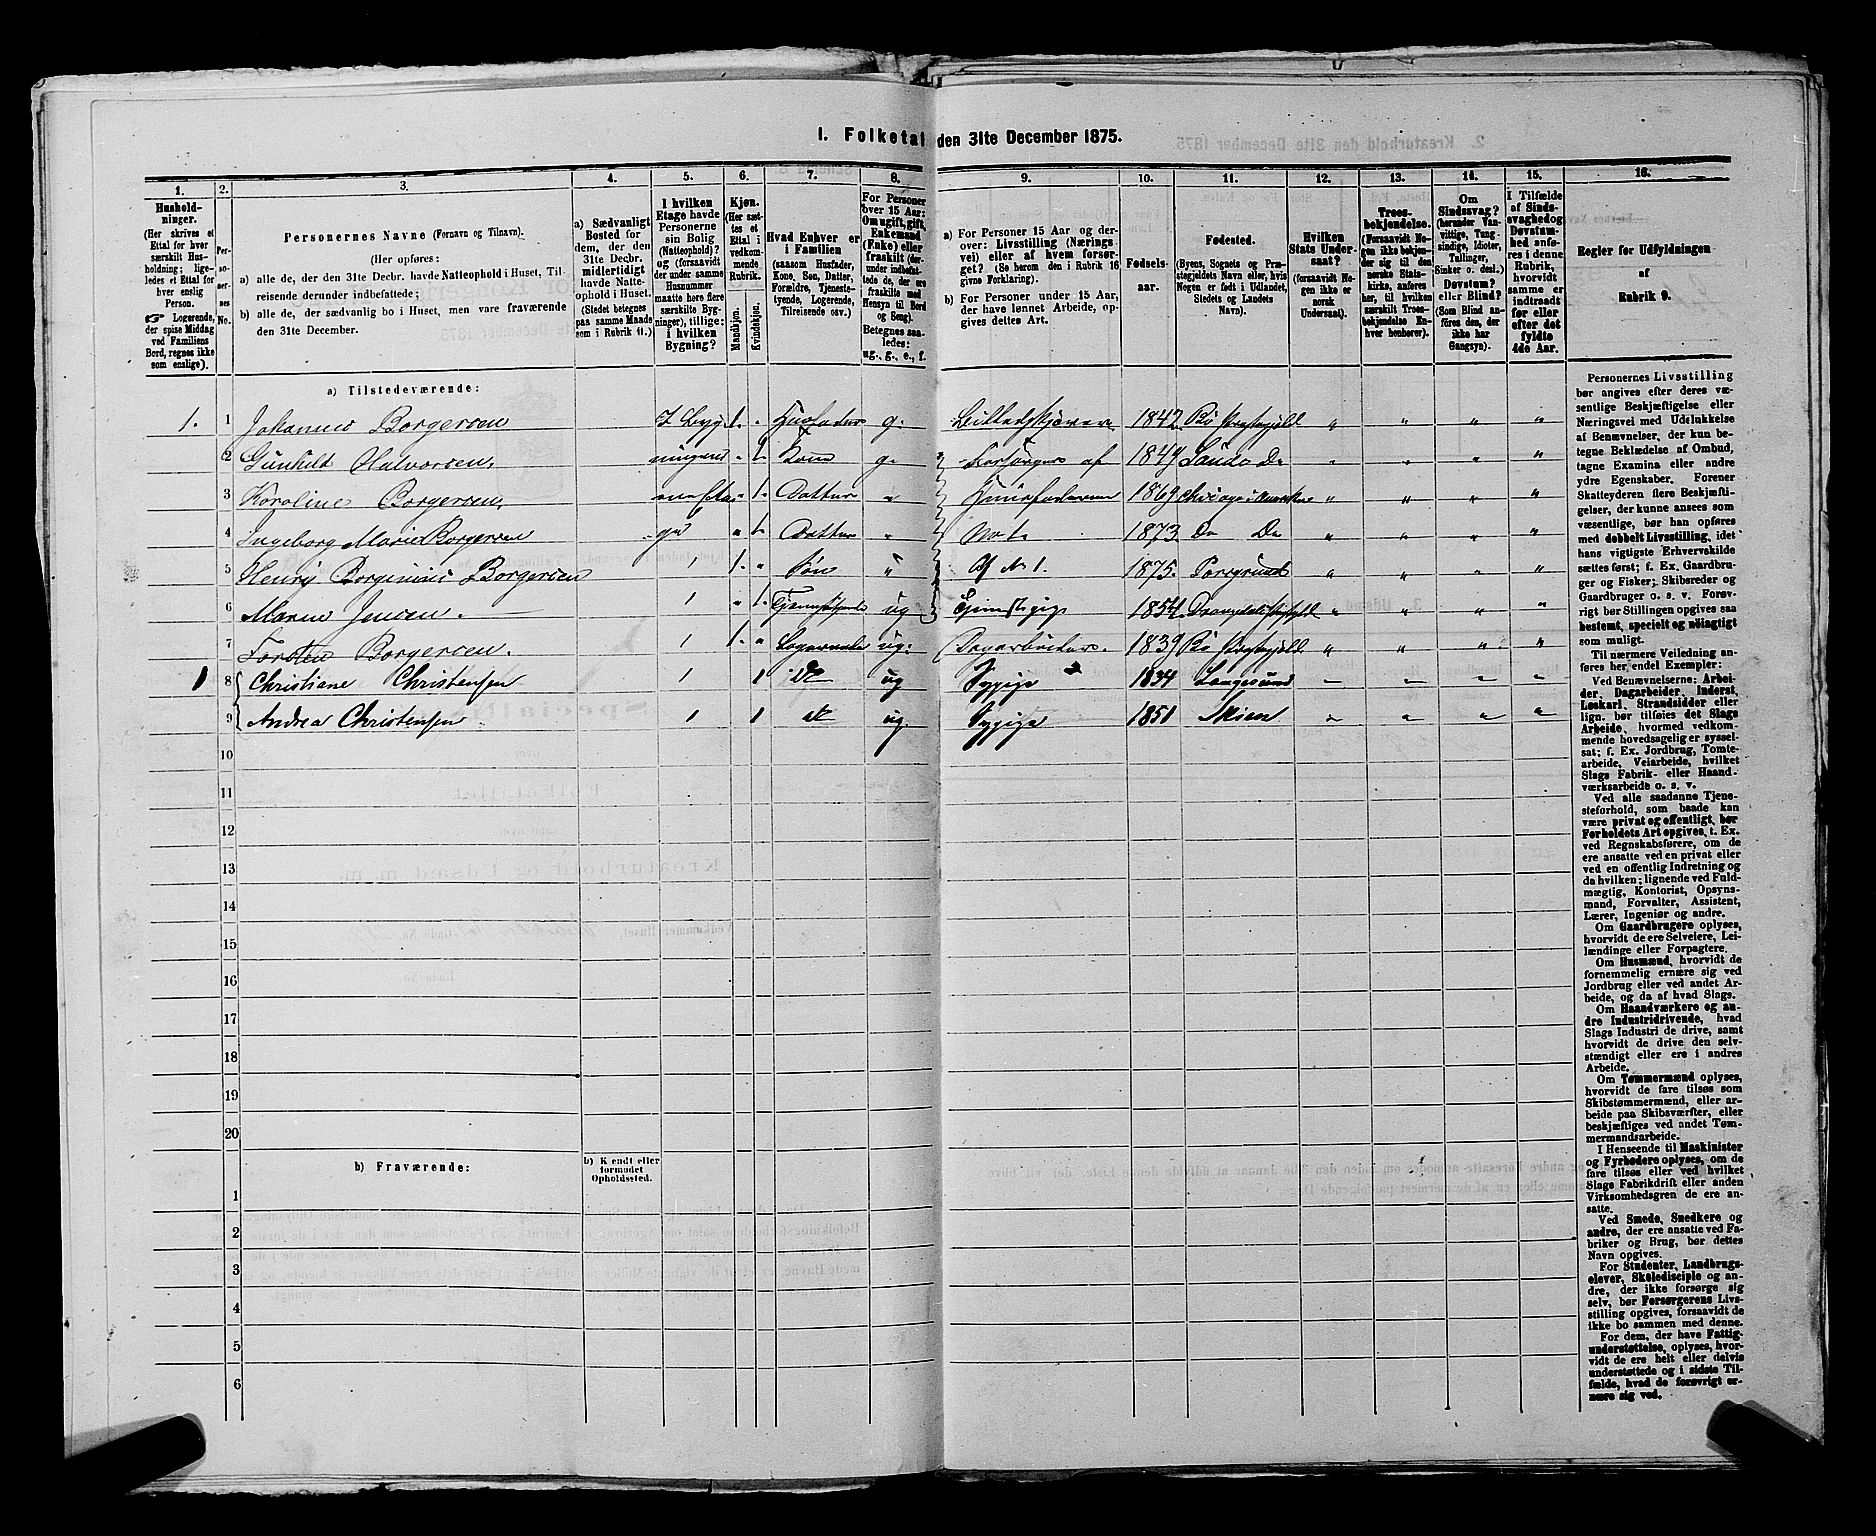 I. Folketal den 31te December 1875.
1. 2. 3. 4. 5. 6. 7. 8. 9. 10. 11. 12. 13. 14. 15. 16.
Hushold-
ninger.
(Her skrives et
Ettal for hver
særskilt Hus-
holdning; lige-
ledes et Ettal for
hver enslig
Person.
☞ Logerende,
der spise Middag
ved Familiens
Bord, regnes ikke
som enslige).
Per-
so-
ner-
nes
No.
Personernes Navne (Fornavn og Tilnavn).
(Her opføres:
a) alle de, der den 31te Decbr. havde Natteophold i Huset, Til-
reisende derunder indbefattede;
b) alle de, der sædvanlig bo i Huset, men vare fraværende
den 31te December.
a) Sædvanligt
Bosted for
dem, der den
31te Decbr.
midlertidigt
havde Natte-
ophold i Huset.
(Stedet betegnes
paa samme Maade
som i Rubrik 11.)
I hvilken
Etage havde
Personerne
sin Bolig
(Natteophold)?
og (forsaavidt
der under samme
Husnummer
maatte høre flere
særskilte Byg-
ninger), tillige:
i hvilken
Bygning?
Kjøn.
(Her sæt-
tes et
Ettal i
vedkom-
mende
Rubrik.)
Mandkjøn.
Kvindekjøn.
Hvad Enhver er
i Familien
(saasom Husfader,
Kone, Søn, Datter,
Forældre, Tjeneste-
tyende, Logerende,
Tilreisende osv.)
For Personer
over 15 Aar:
Om ugift, gift,
Enkemand
(Enke) eller
fraskilt (der-
under indbefat-
tede de, der ere
fraskilte med
Hensyn til Bord
og Seng).
Betegnes saa-
ledes:
ug., g., e., f.
a) For Personer 15 Aar og der-
over: Livsstilling (Nærings-
vei) eller af hvem forsør-
get? (Se herom den i Rubrik 16
givne Forklaring).
b) For Personer under 15 Aar,
der have lønnet Arbeide, op-
gives dettes Art.
Fødsels-
aar.
Fødested.
(Byens, Sognets og Præ-
stegjeldets Navn eller, hvis
Nogen er født i Udlandet,
Stedets og Landets
Navn).
Hvilken
Stats Under-
saat?
(forsaavidt No-
gen ikke er
norsk
Undersaat).
Troes-
bekjendelse.
(Forsaavidt No-
gen ikke bekjen-
der sig til den
norske Stats-
kirke, anføres
her, til hvilken
særskilt Troes-
bekjendelse En-
hver henhører).
Om
Sindssvag?
(herunder Van-
vittige, Tung-
sindige, Idioter,
Tullinger,
Sinker o. desl.)
Døvstum?
eller Blind?
(Som Blind an-
føres den, der
ikke har
Gangsyn).
I Tilfælde
af Sinds-
svaghed og
Døvstum-
hed anfø-
res i denne
Rubrik,
hvorvidt
samme er
indtraadt
før eller
efter det
fyldte
4de Aar.
Regler for Udfyldningen
af
Rubrik 9.
a) Tilstedeværende:
1. 1 Johannes Borgersen 1. Husfader g. 1842 Bø Præstegjeld " " " "
2 Gunhild Halvorsen, " 1. Kone g. Forsørges af 1849 Saude Do
3 Karoline Borgersen, " 1. Datter " Huusfaderen 1869 " " " "
4 Ingeborg Marie Borgersen " 1. Datter " No 1. 1873. Do Do " " " "
5 Henry Borgersen 1 1. " Søn " Af No 1. 1875. Porsgrund " " " "
6 Maren Jensen. 1 " 1. ug 1854. " " " "
7 Torsten Borgersen. 1 1. " Logerende ug. Dagarbeider. 1839 Bø Præstegjeld " " " "
1 8 Christiane Christensen 1 1 do ug Sypige 1834 Langesund
9 Andrea Christensen 1 1 do ug. Sypige 1851 Skien
10
11
12
13
14
15
16
17
18
19
20
b) Fraværende:
b) Kjendt eller
formodet
Opholdssted.
1
2
3
4
5
6
Personernes Livsstilling
bør angives efter deres væ-
sentlige Beskjæftigelse eller
Næringsvei med Udelukkelse
af Benævnelser, der kun be-
tegne Beklædelse af Ombud,
tagne Examina eller andre
ydre Egenskaber. Forener
Skatteyderen flere Beskjæfti-
gelser, der kunne ansees som
væsentlige, bør han opføres
med dobbelt Livsstilling, idet
hans vigtigste Erhvervskilde
sættes først; f. Ex. Gaardbru-
ger og Fisker; Skibsreder og
Gaardbruger o. s. v. Forøv-
rigt bør Stillingen opgives saa
bestemt, specielt og nøiagtigt
som muligt.
Til nærmere Veiledning an-
føres her, endel Exempler:
Ved Benævnelserne: Arbei-
der, Dagarbeider, Inderst,
Løskarl, Strandsidder eller
lign. bør tilføies det Slags
Arbeide, hvormed vedkom-
mende hovedsagelig er syssel-
sat; f. Ex. Jordbrug, Tomte-
arbeide, Veiarbeide, hvilket
Slags Fabrik- eller Haand-
værksarbeide o. s. v.
Ved alle saadanne Tjene-
steforhold, som baade kan
være privat og offentligt, bør
Forholdets Art opgives, t. Ex.
ved Regnskabsførere, om de
ere ansatte ved en privat eller
ved en offentlig Indretning og
da hvilken; lignende ved Fuld-
mægtig, Kontorist, Opsyns-
mand, Forvalter, Assistent,
Lærer, Ingeniør og andre.
Om Gaardbrugere oplyses,
hvorvidt de ere Selveiere, Lei-
lændinge eller Forpagtere.
Om Husmænd, hvorvidt de
fornemmelig ernære sig ved
Jordbrug eller ved andet Ar-
beide, og da af hvad Slags.
Om Haandværkere og an-
dre Industridrivende, hvad
Slags Industri de drive, samt
hvorvidt de drive den selv-
stændigt eller ere i andres
Arbeide.
Om Tømmermænd oplyses,
hvorvidt de fare tilsøs som
Skibstømmermænd, eller ar-
beide paa Skibsværfter, eller
beskjæftiges ved andet Tøm-
mermandsarbeide.
I Henseende til Maskinister
og Fyrbødere oplyses, om de
fare tilsøs eller ved hvilket
Slags Fabrikdrift eller anden
Virksomhedsgren de ere an-
satte.
Ved Smede, Snedkere og
andre, der ere ansatte ved Fa-
briker og Brug, bør dettes
Navn opgives.
For Studenter, Landbrugs-
elever, Skoledisciple og an-
dre, der ikke forsørge sig
selv, bør Forsørgerens Livs-
stilling opgives, forsaavidt de
ikke bo sammen med denne.
For dem, der have Fattig-
understøttelse, oplyses, hvor-
vidt de ere helt eller delvis
understøttede og i sidste Til-
fælde, hvad de forøvrigt er-
nære sig ved.